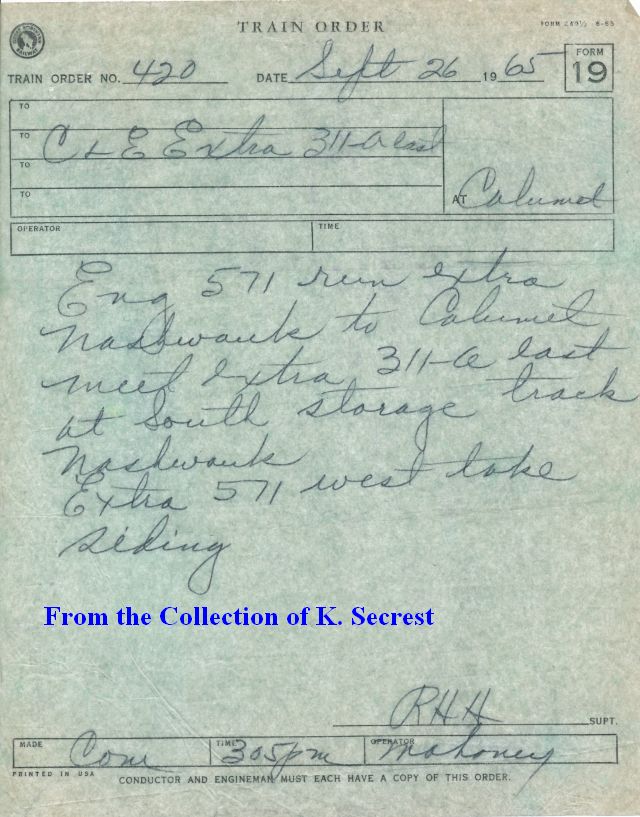 TRAIN ORDER
FORM 19
TRAIN ORDER NO. 420 DATE Sept 26 1965
TO
TO C & E Extra 311-A East
TO
TO
AT Calumet
OPERATOR TIME
Eng 571 run extra
Nashwauk to Calumet
meet extra 311-A East
at South storage track
Nashwauk
Extra 571 west take
siding
From the Collection of K. Secrest
RHH SUPT.
MADE Com TIME 305pm OPERATOR Mahoney
PRINTED IN USA
CONDUCTOR AND ENGINEMAN MUST EACH HAVE A COPY OF THIS ORDER.